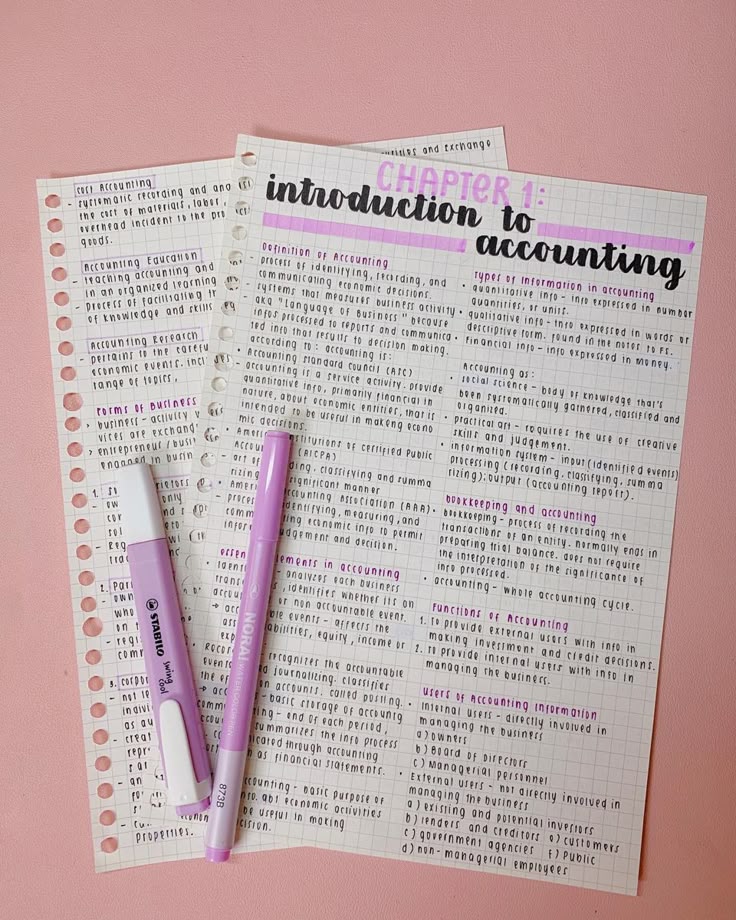 CHAPTER 1:
introduction to
accounting
Definition of Accounting
- process of identifying, recording, and
communicating economic decisions.
- systems that measures business activity
- aka "Language of Business" because
infos processed to reports and communica
ted into that results to decision making.
according to: accounting is:
• Accounting standard council (ASC)
- accounting is a service activity. provide
quantitative info, primarily financial in
nature, about economic entities, that is
intended to be useful in making econo
mic decisions.
• Ame
stitutions of certified Public
Accou
(AICPA)
- art o
, classifying and summa
rizing
significant manner
• Ameri
ccounting Association (AAA)
- proces
dentifying, measuring, and
comm
ing economic info to permit
infor
udgement and decision.
essen
ements in accounting
• Identi
- analyzes each business
trans
, identifies whether its on
accou
or non accountable event.
→ acco
le events - affects the
abilities, equity, income or
exp
• Recor
recognizes the accountable
events
journalizing. classifies
→ acco
n accounts, called posting.
- basic storage of accounts
- end of each period,
summarizes the info process
icated through accounting
as financial statements.
counting - basic purpose of
info. abt economic activities
be useful in making
cision.
types of information in accounting
• quantitative info - info expressed in number
quantities, or units.
• qualitative info - info expressed in words or
descriptive form. found in the notes to FS.
• financial info - info expressed in money.
Accounting as:
• social science - body of knowledge that's
been systematically gathered, classified and
organized.
• practical art - requires the use of creative
skills and judgement.
• information system - input (identified events)
processing (recording, classifying, summa
rizing); output (accounting report).
bookkeeping and accounting
• bookkeeping - process of recording the
transactions of an entity. normally ends in
preparing trial balance. does not require
the interpretation of the significance of
info processed.
• accounting - whole accounting cycle.
functions of Accounting
1. to provide external users with info in
making investment and credit decisions.
2. to provide internal users with info in
managing the business.
users of Accounting information
• Internal users - directly involved in
managing the business
a) owners
b) Board of directors
c) Managerial personnel
• External users - not directly involved in
managing the business
a) existing and potential investors
b) lenders and creditors e) customers
c) government agencies f) Public
d) non-managerial employees
and exchange
cost Accounting
- systematic recording and ana
the cost of materials, labor,
overhead incident to the pro
goods.
Accounting Education
- teaching accounting and
in an organized learning
- process of facilitating t
of knowledge and skills
Accounting Research
- pertains to the carefu
economic events. incl
range of topics,
forms of Business
• business - activity
vices are exchan
• entrepreneur / busi
engaged in busin
1. S
ctors
- ow
only
sol
- reg
trad
2. Par
- own
who
on
- regis
comm
3. corpo
- not
indivi
as au
- creat
repre
- an
for
- cu
Properties
STABILO
swing
cool
NORAI WATERCOLOR PEN
873B